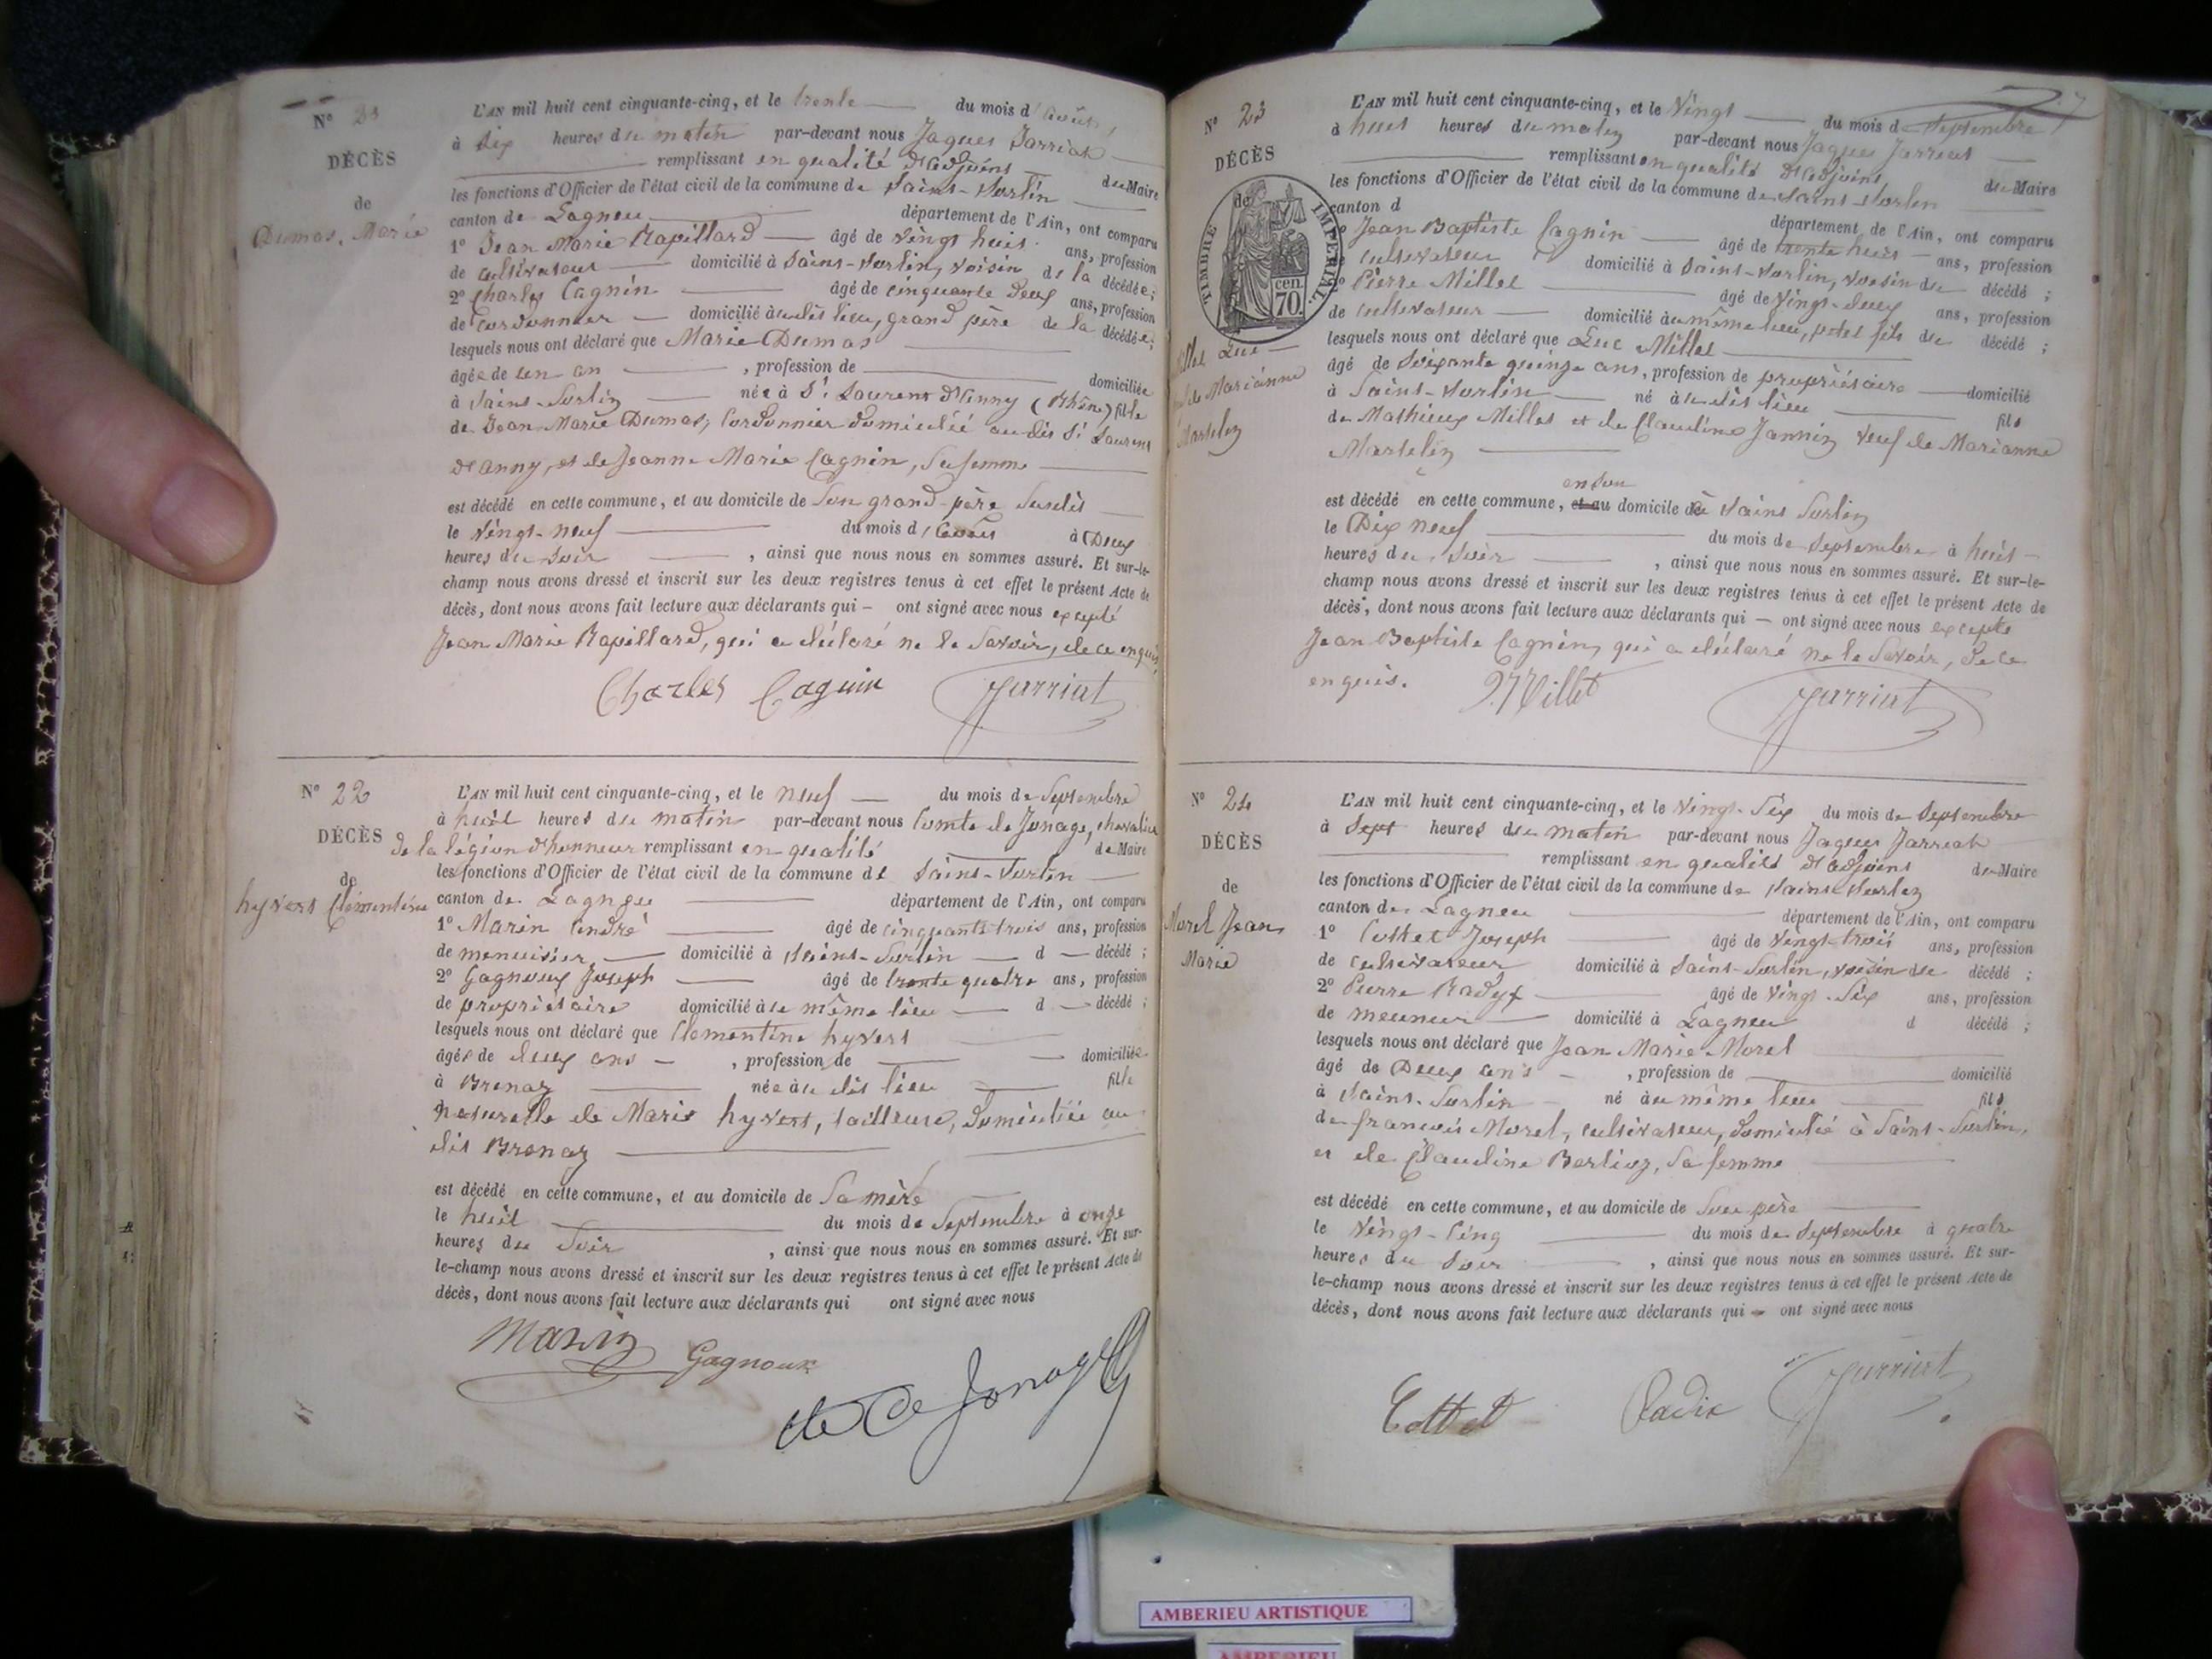 N° 21
DÉCÈS
de
Dumas, Marie
L'AN mil huit cent cinquante-cinq, et le trente du mois d'Août,
à dix heures du matin par-devant nous Jaques Jarriat
remplissant en qualité d'adjoint du Maire
les fonctions d'Officier de l'état civil de la commune de Saint-Sorlin
canton de Lagneu département de l'Ain, ont comparu
1° Jean Marie Rapillard âgé de vingt huit ans, profession
de cultivateur domicilié à Saint-Sorlin, voisin de la décédée;
2° Charles Cagnin âgé de cinquante deux ans, profession
de Cordonnier domicilié audit lieu, grand père de la décédée;
lesquels nous ont déclaré que Marie Dumas
âgée de un an , profession de domiciliée
à Saint-Sorlin née à St Laurent d'anny (Rhône) fille
de Jean Marie Dumas, Cordonnier domicilié au dit St Laurent
d'anny, et de Jeanne Marie Cagnin, sa femme
est décédé en cette commune, et au domicile de son grand-père susdit
le vingt-neuf du mois d'Août à Deux
heures du soir , ainsi que nous nous en sommes assuré. Et sur-le-
champ nous avons dressé et inscrit sur les deux registres tenus à cet effet le présent Acte de
décès, dont nous avons fait lecture aux déclarants qui – ont signé avec nous excepté
Jean Marie Rapillard, qui a déclaré ne le savoir, de ce enquis,
Charles Cagnin Jarriat
N° 22
DÉCÈS
de
hyvert Clementine
L'AN mil huit cent cinquante-cinq, et le neuf du mois de Septembre
à huit heures du matin par-devant nous Comte de Jonage, chevalier
de la légion d'honneur remplissant en qualité de Maire
les fonctions d'Officier de l'état civil de la commune de Saint-Sorlin
canton de Lagneu département de l'Ain, ont comparu
1° Marin André âgé de cinquante trois ans, profession
de menuisier domicilié à Saint-Sorlin d décédé ;
2° Gagnoux Joseph âgé de trente quatre ans, profession
de propriétaire domicilié au même lieu d décédé ;
lesquels nous ont déclaré que Clementine hyvert
âgée de deux ans , profession de domiciliée
à Brenaz née au dit lieu fille
naturelle de Marie hyvert, tailleuse, domiciliée au
dit Brenaz
est décédé en cette commune, et au domicile de Sa mère
le huit du mois de Septembre à onze
heures du soir , ainsi que nous nous en sommes assuré. Et sur-
le-champ nous avons dressé et inscrit sur les deux registres tenus à cet effet le présent Acte de
décès, dont nous avons fait lecture aux déclarants qui ont signé avec nous
Marin Gagnoux
de Jonage
N° 23
DÉCÈS
de
TIMBRE IMPERIAL.
70 cen
Millet Luc
de Marianne
Martelin
L'AN mil huit cent cinquante-cinq, et le Vingt du mois de Septembre
à huit heures du matin par-devant nous Jaques Jarriat
remplissant en qualité d'adjoint du Maire
les fonctions d'Officier de l'état civil de la commune de Saint-Sorlin
canton d département de l'Ain, ont comparu
Jean Baptiste Cagnin âgé de trente huit ans, profession
cultivateur domicilié à Saint-Sorlin, voisin du décédé ;
Pierre Millet âgé de Vingt-deux ans, profession
de cultivateur domicilié au même lieu, petit fils du décédé ;
lesquels nous ont déclaré que Luc Millet
âgé de Soixante quinze ans, profession de propriétaire domicilié
à Saint-Sorlin né au dit lieu fils
de Mathieu Millet et de Claudine Jannin veuf de Marianne
Martelin
est décédé en cette commune, et au en son domicile de à Saint Sorlin
le Dix neuf du mois de Septembre à huit
heures du soir , ainsi que nous nous en sommes assuré. Et sur-le-
champ nous avons dressé et inscrit sur les deux registres tenus à cet effet le présent Acte de
décès, dont nous avons fait lecture aux déclarants qui – ont signé avec nous excepté
Jean Baptiste Cagnin, qui a déclaré ne le savoir, de ce
enquis. Millet Jarriat
N° 24
DÉCÈS
de
Morel Jean
Marie
L'AN mil huit cent cinquante-cinq, et le Vingt-Six du mois de Septembre
à Sept heures du matin par-devant nous Jaques Jarriat
remplissant en qualité d'adjoint du Maire
les fonctions d'Officier de l'état civil de la commune de Saint-Sorlin
canton de Lagneu département de l'Ain, ont comparu
1° Cottet Joseph âgé de Vingt-trois ans, profession
de cultivateur domicilié à Saint-Sorlin, voisin du décédé ;
2° Pierre Radix âgé de Vingt-Six ans, profession
de meunier domicilié à Lagneu d décédé ;
lesquels nous ont déclaré que Jean Marie Morel
âgé de Deux ans , profession de domicilié
à Saint-Sorlin né au même lieu fils
de françois Morel, cultivateur, domicilié à Saint-Sorlin,
et de Claudine Berlioz, sa femme
est décédé en cette commune, et au domicile de Son père
le Vingt-Cinq du mois de Septembre à quatre
heures du soir , ainsi que nous nous en sommes assuré. Et sur-
le-champ nous avons dressé et inscrit sur les deux registres tenus à cet effet le présent Acte de
décès, dont nous avons fait lecture aux déclarants qui – ont signé avec nous
Cottet Radix Jarriat
AMBERIEU ARTISTIQUE
AMBERIEU